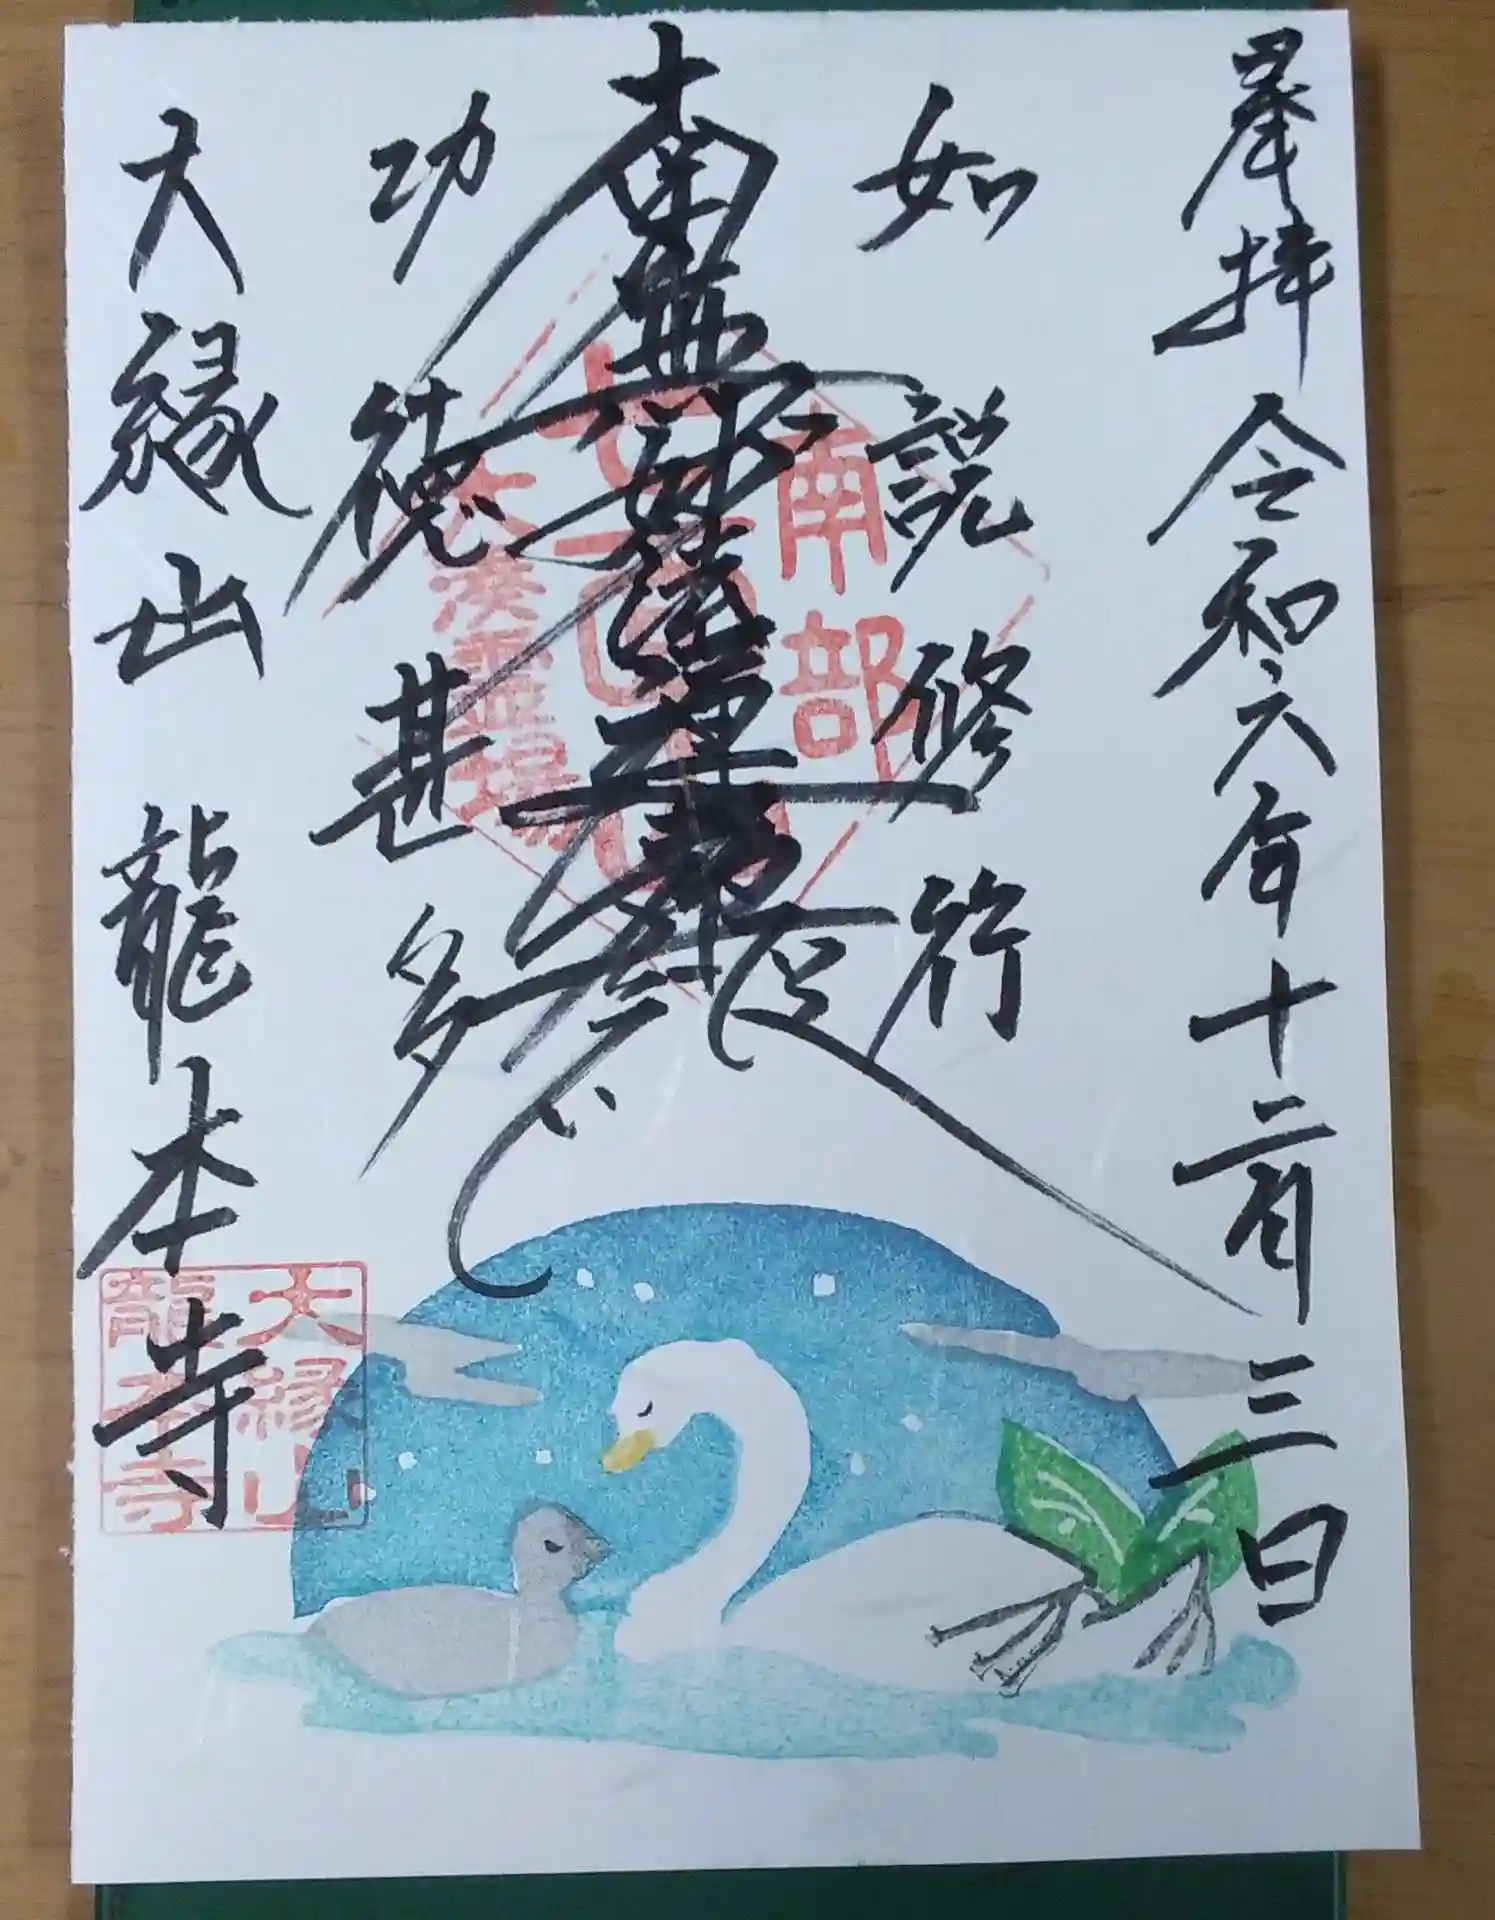 奉拝 令和六年十二月三日
如説修行
南無妙法蓮華経
功徳甚多
大縁山 龍本寺
南部
大湊霊場
大縁山
龍本寺